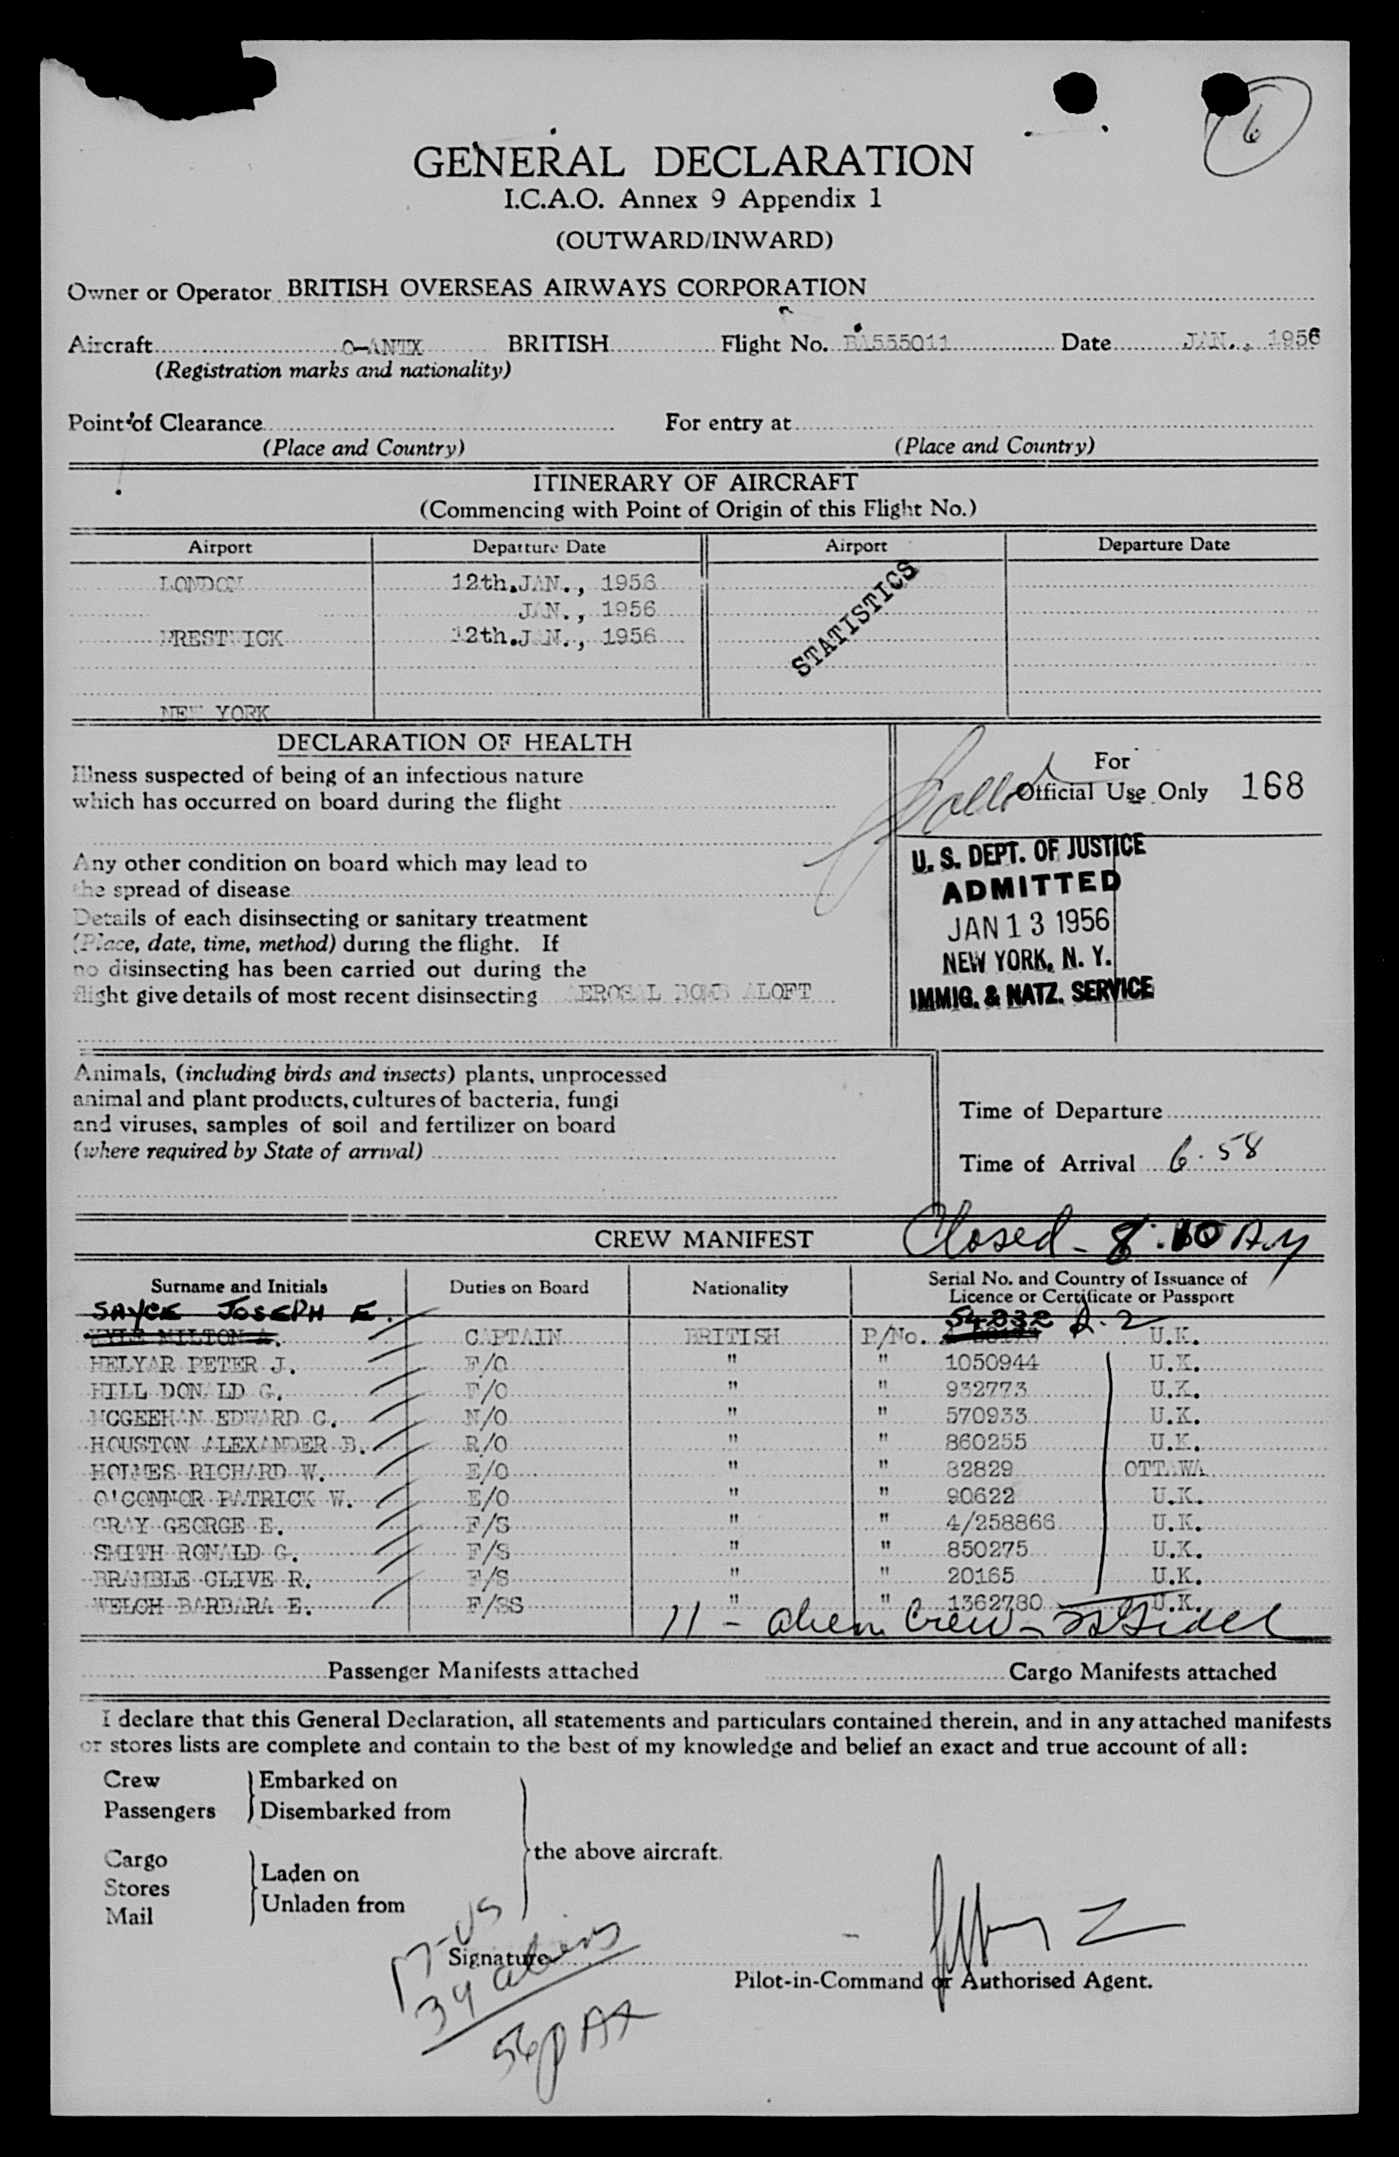 6
GENERAL DECLARATION
I.C.A.O. Annex 9 Appendix 1
(OUTWARD/INWARD)
Owner or Operator BRITISH OVERSEAS AIRWAYS CORPORATION
Aircraft BRITISH Flight No. BA555011 Date JAN., 1956
(Registration marks and nationality)
Point of Clearance For entry at
(Place and Country) (Place and Country)
ITINERARY OF AIRCRAFT
(Commencing with Point of Origin of this Flight No.)
Airport Departure Date Airport Departure Date
LONDON 12th.JAN., 1956
JAN., 1956
PRESTWICK 12th.JAN., 1956
STATISTICS
NEW YORK
DECLARATION OF HEALTH
Illness suspected of being of an infectious nature
which has occurred on board during the flight
For
Official Use Only 168
Any other condition on board which may lead to
the spread of disease
Details of each disinsecting or sanitary treatment
(Place, date, time, method) during the flight. If
no disinsecting has been carried out during the
flight give details of most recent disinsecting AEROSAL BOMB ALOFT
U. S. DEPT. OF JUSTICE
ADMITTED
JAN 13 1956
NEW YORK, N. Y.
IMMIG. & NATZ. SERVICE
Animals, (including birds and insects) plants, unprocessed
animal and plant products, cultures of bacteria, fungi
and viruses, samples of soil and fertilizer on board
(where required by State of arrival)
Time of Departure
Time of Arrival 6.58
Closed - 8:10 AM
CREW MANIFEST
Surname and Initials Duties on Board Nationality Serial No. and Country of Issuance of
Licence or Certificate or Passport
SAYCE JOSEPH E. 54832 A.2
KYLE MILTON A. CAPTAIN BRITISH P/No. U.K.
HELYAR PETER J. F/O " " 1050944 U.K.
HILL DONALD G. F/O " " 932773 U.K.
MCGEEHAN EDWARD C. N/O " " 570933 U.K.
HOUSTON ALEXANDER B. R/O " " 860255 U.K.
HOLMES RICHARD W. E/O " " 82829 OTTAWA
O'CONNOR PATRICK W. E/O " " 90622 U.K.
GRAY GEORGE E. F/S " " 4/258866 U.K.
SMITH RONALD G. F/S " " 850275 U.K.
BRAMBLE CLIVE R. F/S " " 20165 U.K.
WELCH BARBARA E. F/SS " " 1362780 U.K.
11 - alien Crew -
Passenger Manifests attached Cargo Manifests attached
I declare that this General Declaration, all statements and particulars contained therein, and in any attached manifests
or stores lists are complete and contain to the best of my knowledge and belief an exact and true account of all:
Crew Embarked on
Passengers Disembarked from
the above aircraft.
Cargo Laden on
Stores
Mail Unladen from
17-US
39 aliens
56 PAX
Signature
Pilot-in-Command or Authorised Agent.